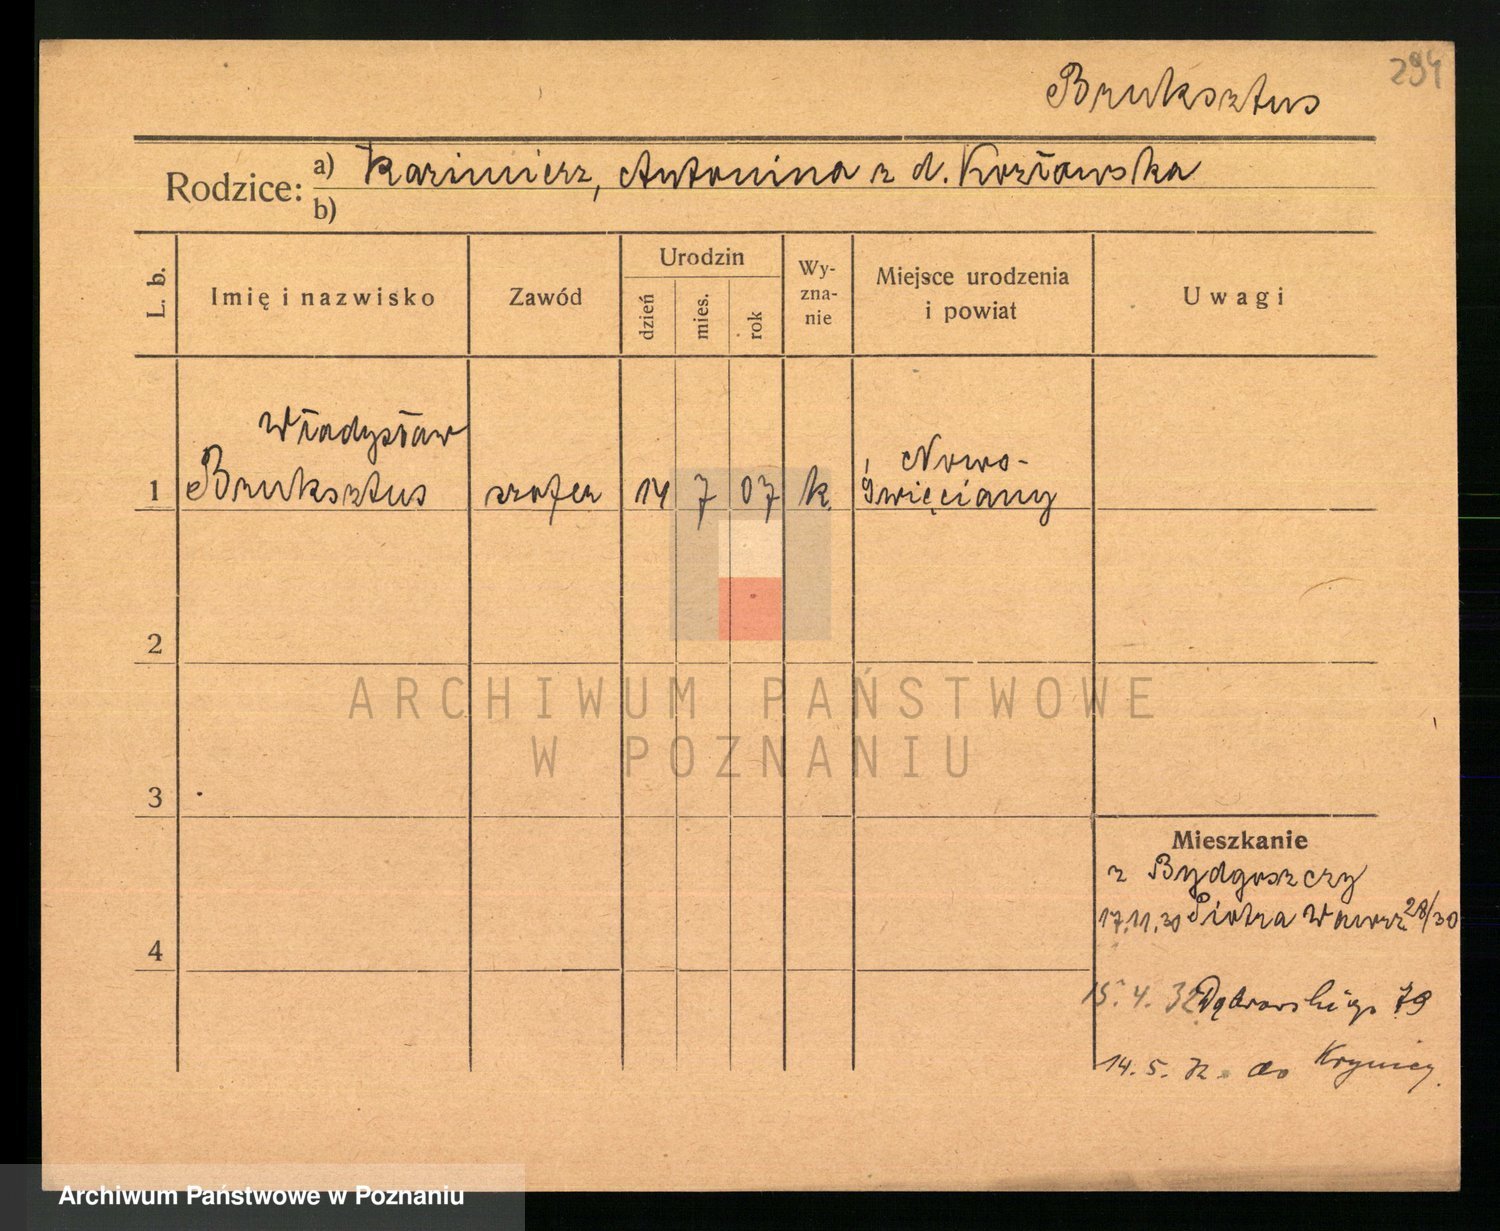 294
Bruksztus
Rodzice:
a) Kazimierz, Antonina z d. Kozłowska
b)
L. b.
Imię i nazwisko
Zawód
Urodzin
dzień
mies.
rok
Wy-
zna-
nie
Miejsce urodzenia
i powiat
Uwagi
Władysław
Nowo-
1 Bruksztus szofer 14 7 07 k. Święciany
2
ARCHIWUM PAŃSTWOWE
W POZNANIU
3
Mieszkanie
z Bydgoszczy
17.11.30 Piotra Wawrz. 28/30
4
15.4.32 Dąbrowskiego 79
14.5.32. do Krynicy.
Archiwum Państwowe w Poznaniu